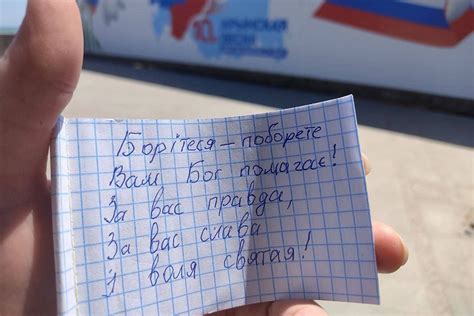 КРЫМСКАЯ
ВЕСНА
Борітеся – поборете
Вам Бог помагає!
За вас правда,
За вас слава
І воля святая!